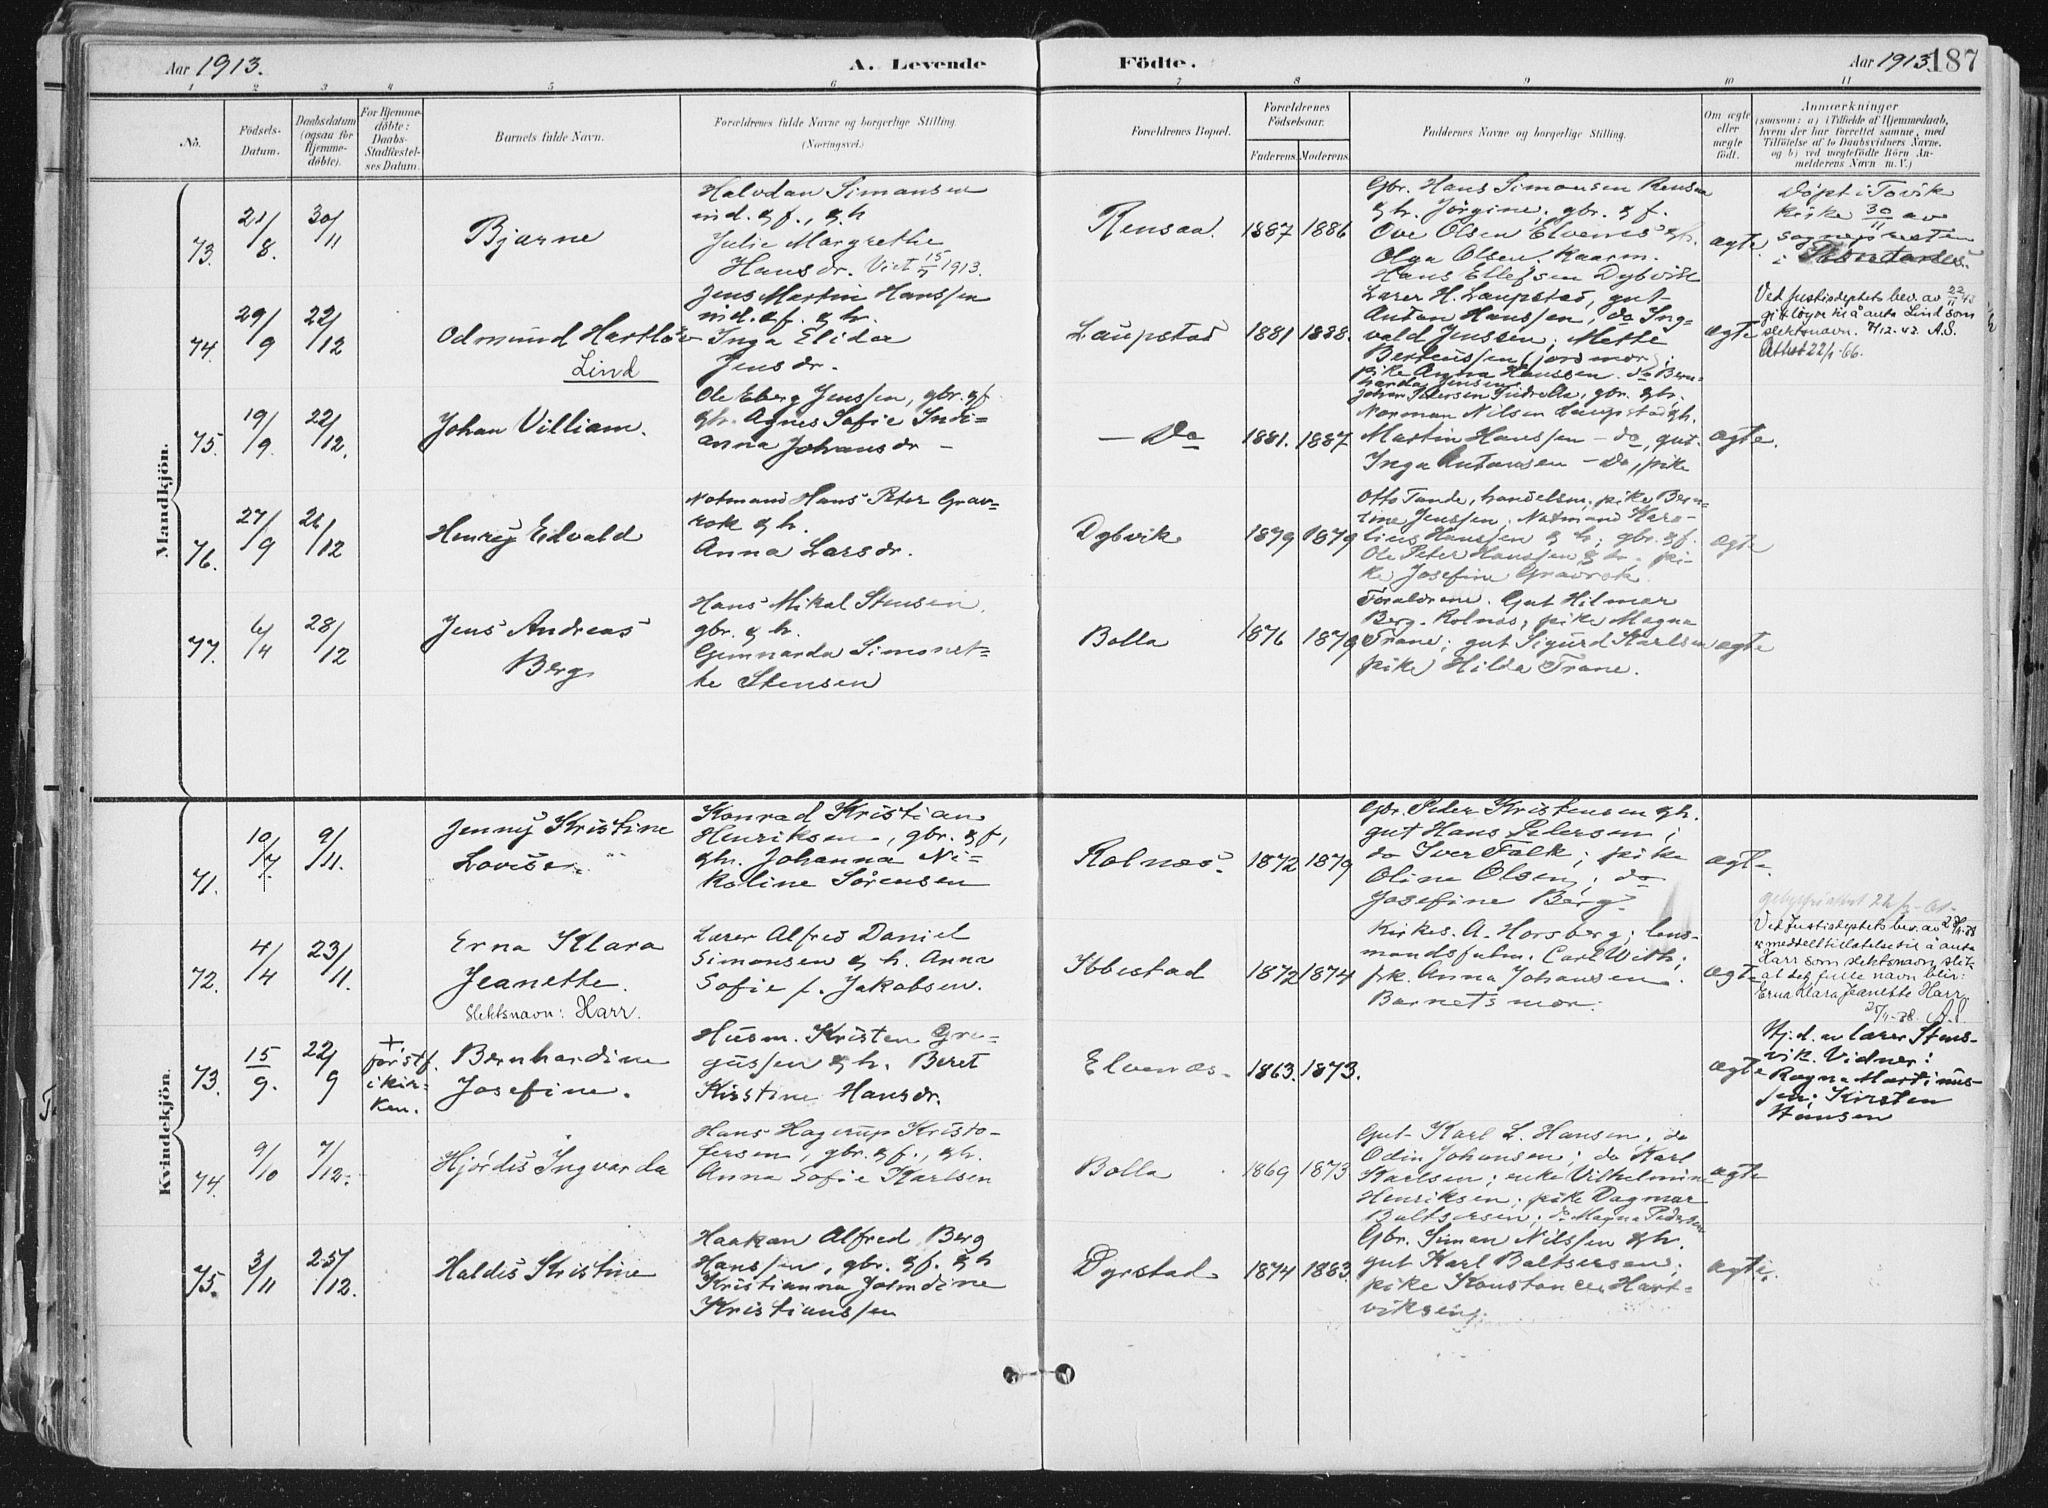 Aar 1913. A. Levende Födte. Aar 1913 187
1 2 3 4 5 6 7 8 9 10 11
No.
Födsels-
Datum.
Daabsdatum
(ogsaa for
Hjemme-
döbte).
For Hjemme-
döbte:
Daabs-
Stadfæstel-
ses Datum.
Barnets fulde Navn.
Forældrenes fulde Navne og borgerlige Stilling.
(Næringsvei.)
Forældrenes Bopæl.
Forældrenes
Födselsaar.
Faderens. Moderens.
Faddernes Navne og borgerlige Stilling.
Om ægte
eller
uægte
födt.
Anmærkninger
(saasom: a) i Tilfælde af Hjemmedaab,
hvem der har forrettet samme, med
Tilföielse af to Daabsvidners Navne,
og b) ved uægtefödte Börn An-
melderens Navn m. V.)
Mandkjön.
73.
21/8.
30/11
Bjarne
Halvdan Simonsen
ind. & f., & h
Julie Margrethe
Hansdr. Viet 15/9 1913.
Rensaa.
1887 1886
Gbr. Hans Simonsen Rensaa
& h. Jörgine; gbr. & f.
Ove Olsen Elvenes & h.
Olga Olsen. Kaarm.
Hans Ellefsen Dybvik
ægte.
Döpt i Tovik
kirke 30/11 av
sognepresten
i
74.
29/9
22/12
Odmund Hartlöv
Lind
Jens Martin Hanssen
ind. & f. & h.
Inga Elida
Jensdr.
Laupstad
1881 1888.
Lærer H. Laupstad, gut
Anton Hanssen, do Ing-
vald Jenssen; Mette
Berteussen (jordmor);
pike Anna Hanssen. do Bern-
harda Jensen
ægte
Ved Justisdeptets bev. av 22/11 43
git löyve til å anta Lind som
slektsnavn. 7/12-43. A.S.
Attest 22/1-66.
75.
19/9.
22/12.
Johan Villiam.
Ole Eberg Jenssen, gbr. & f.
& h. Agnes Sofie Indi-
anna Johansdr -
- Do
1881. 1887
Johan Petersen Sudrolla, gbr. & h.
Norman Nilsen Laupstad & h.
Martin Hanssen - do, gut.
Inga Antonsen - Do, pike
ægte.
76.
27/9
26/12
Henrij Edvald
Notmand Hans Peter Grav-
rok & h.
Anna Larsdr.
Dybvik
1879 1879
Otto Tande, handelsm; pike Bern-
tine Jenssen; Notmand Karo-
lius Hanssen & h; gbr. & f.
Ole Peter Hanssen & h. pi-
ke Josefine Gravrok.
ægte
77.
6/4
28/12
Jens Andreas
Berg
Hans Mikal Stensen.
gbr. & h.
Gunnarda Simonet-
te Stensen
Bolla
1876 1879
Forældrene. Gut Hilmar
Berg. Rolnes, pike Magna
Trane; gut Sigurd Karlsen
pike Hilda Trane.
ægte
Kvindekjön.
71.
10/7
9/11.
Jenny Kristine
Lovise.
Konrad Kristian
Henriksen, gbr. & f,
& h. Johanna Ni-
koline Sörensen
Rolnæs.
1872 1879
Gbr. Peder Kristensen & h.
gut Hans Petersen;
do Iver Falk; pike
Oline Olsen; do
Josefine Berg.
ægte.
72.
4/4
23/11.
Erna Klara
Jeanette.
Slektsnavn: Harr.
Lærer Alfred Daniel
Simonsen & h. Anna
Sofie f. Jakobsen.
Ibbestad
1872 1874
Kirkes. A. Horsberg; lens-
mandsfulm. Carl With;
frk. Anna Johansen.
Barnets mor.
ægte
Ved Justisdeptets bev. av
er meddelt tillatelse til å anta
Harr som slektsnavn slik
at det fulle navn blir:
Erna Klara Jeanette Harr
25/11-38. A.S.
73.
15/9.
22/9
+
först f.
i kir-
ken.
Bernhardine
Josefine.
Husm. Kristen Gre-
gussen & h. Beret
Kirstine Hansdr.
Elvenes.
1863. 1873.
ægte
Hj.d. av lærer Stens-
vik. Vidner:
Ragna Martinus-
sen; Kirsten
Hansen
74.
9/10
7/12.
Hjördis Ingvarda
Hans Hagerup Kristo-
fersen, gbr. & f., & h.
Anna Sofie Karlsen
Bolla
1869 1873
Gut Karl L. Hansen; do
Odin Johansen; do Karl
Karlsen; enke Vilhelmine
Henriksen; pike Dagmar
Baltsersen; do Magna Pedersen
ægte
75.
3/11
25/12.
Haldis Kristine
Haakan Alfred Berg
Hanssen, gbr. & f. & h
Kristianna Jalmdine
Kristianssen
Dyrstad
1874 1883.
Gbr. Simon Nilssen & h.
gut Karl Baltsersen;
pike Konstance Hart-
viksen.
ægte.